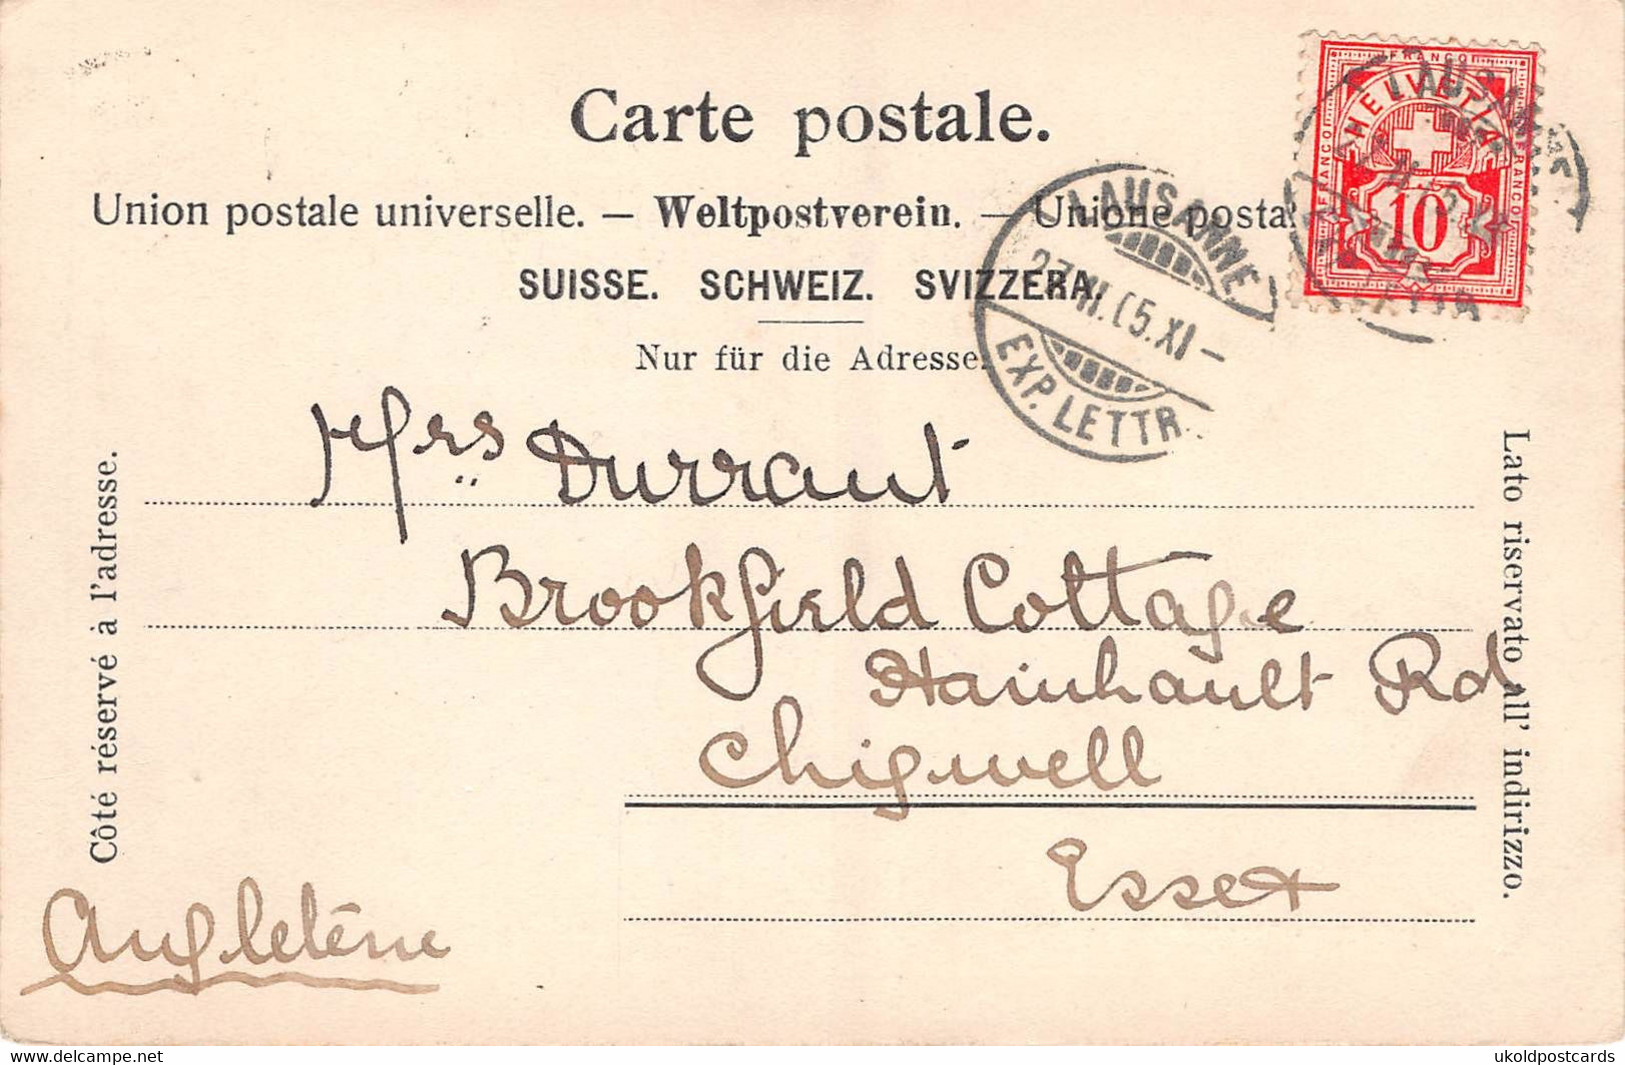 Carte postale.
Union postale universelle. — Weltpostverein. — Unione posta
SUISSE. SCHWEIZ. SVIZZERA.
Nur für die Adresse.
FRANCO
FRANCO
FRANCO
HELVETIA
10
LAUSANNE
LAUSANNE
EXP. LETTR.
Côté réservé à l'adresse.
Lato riservato all' indirizzo.
Mrs Durrant
Brookfield Cottage
Hainhault Rd
Chigwell
Essex
Angleterre
delcampe.net
ukoldpostcards